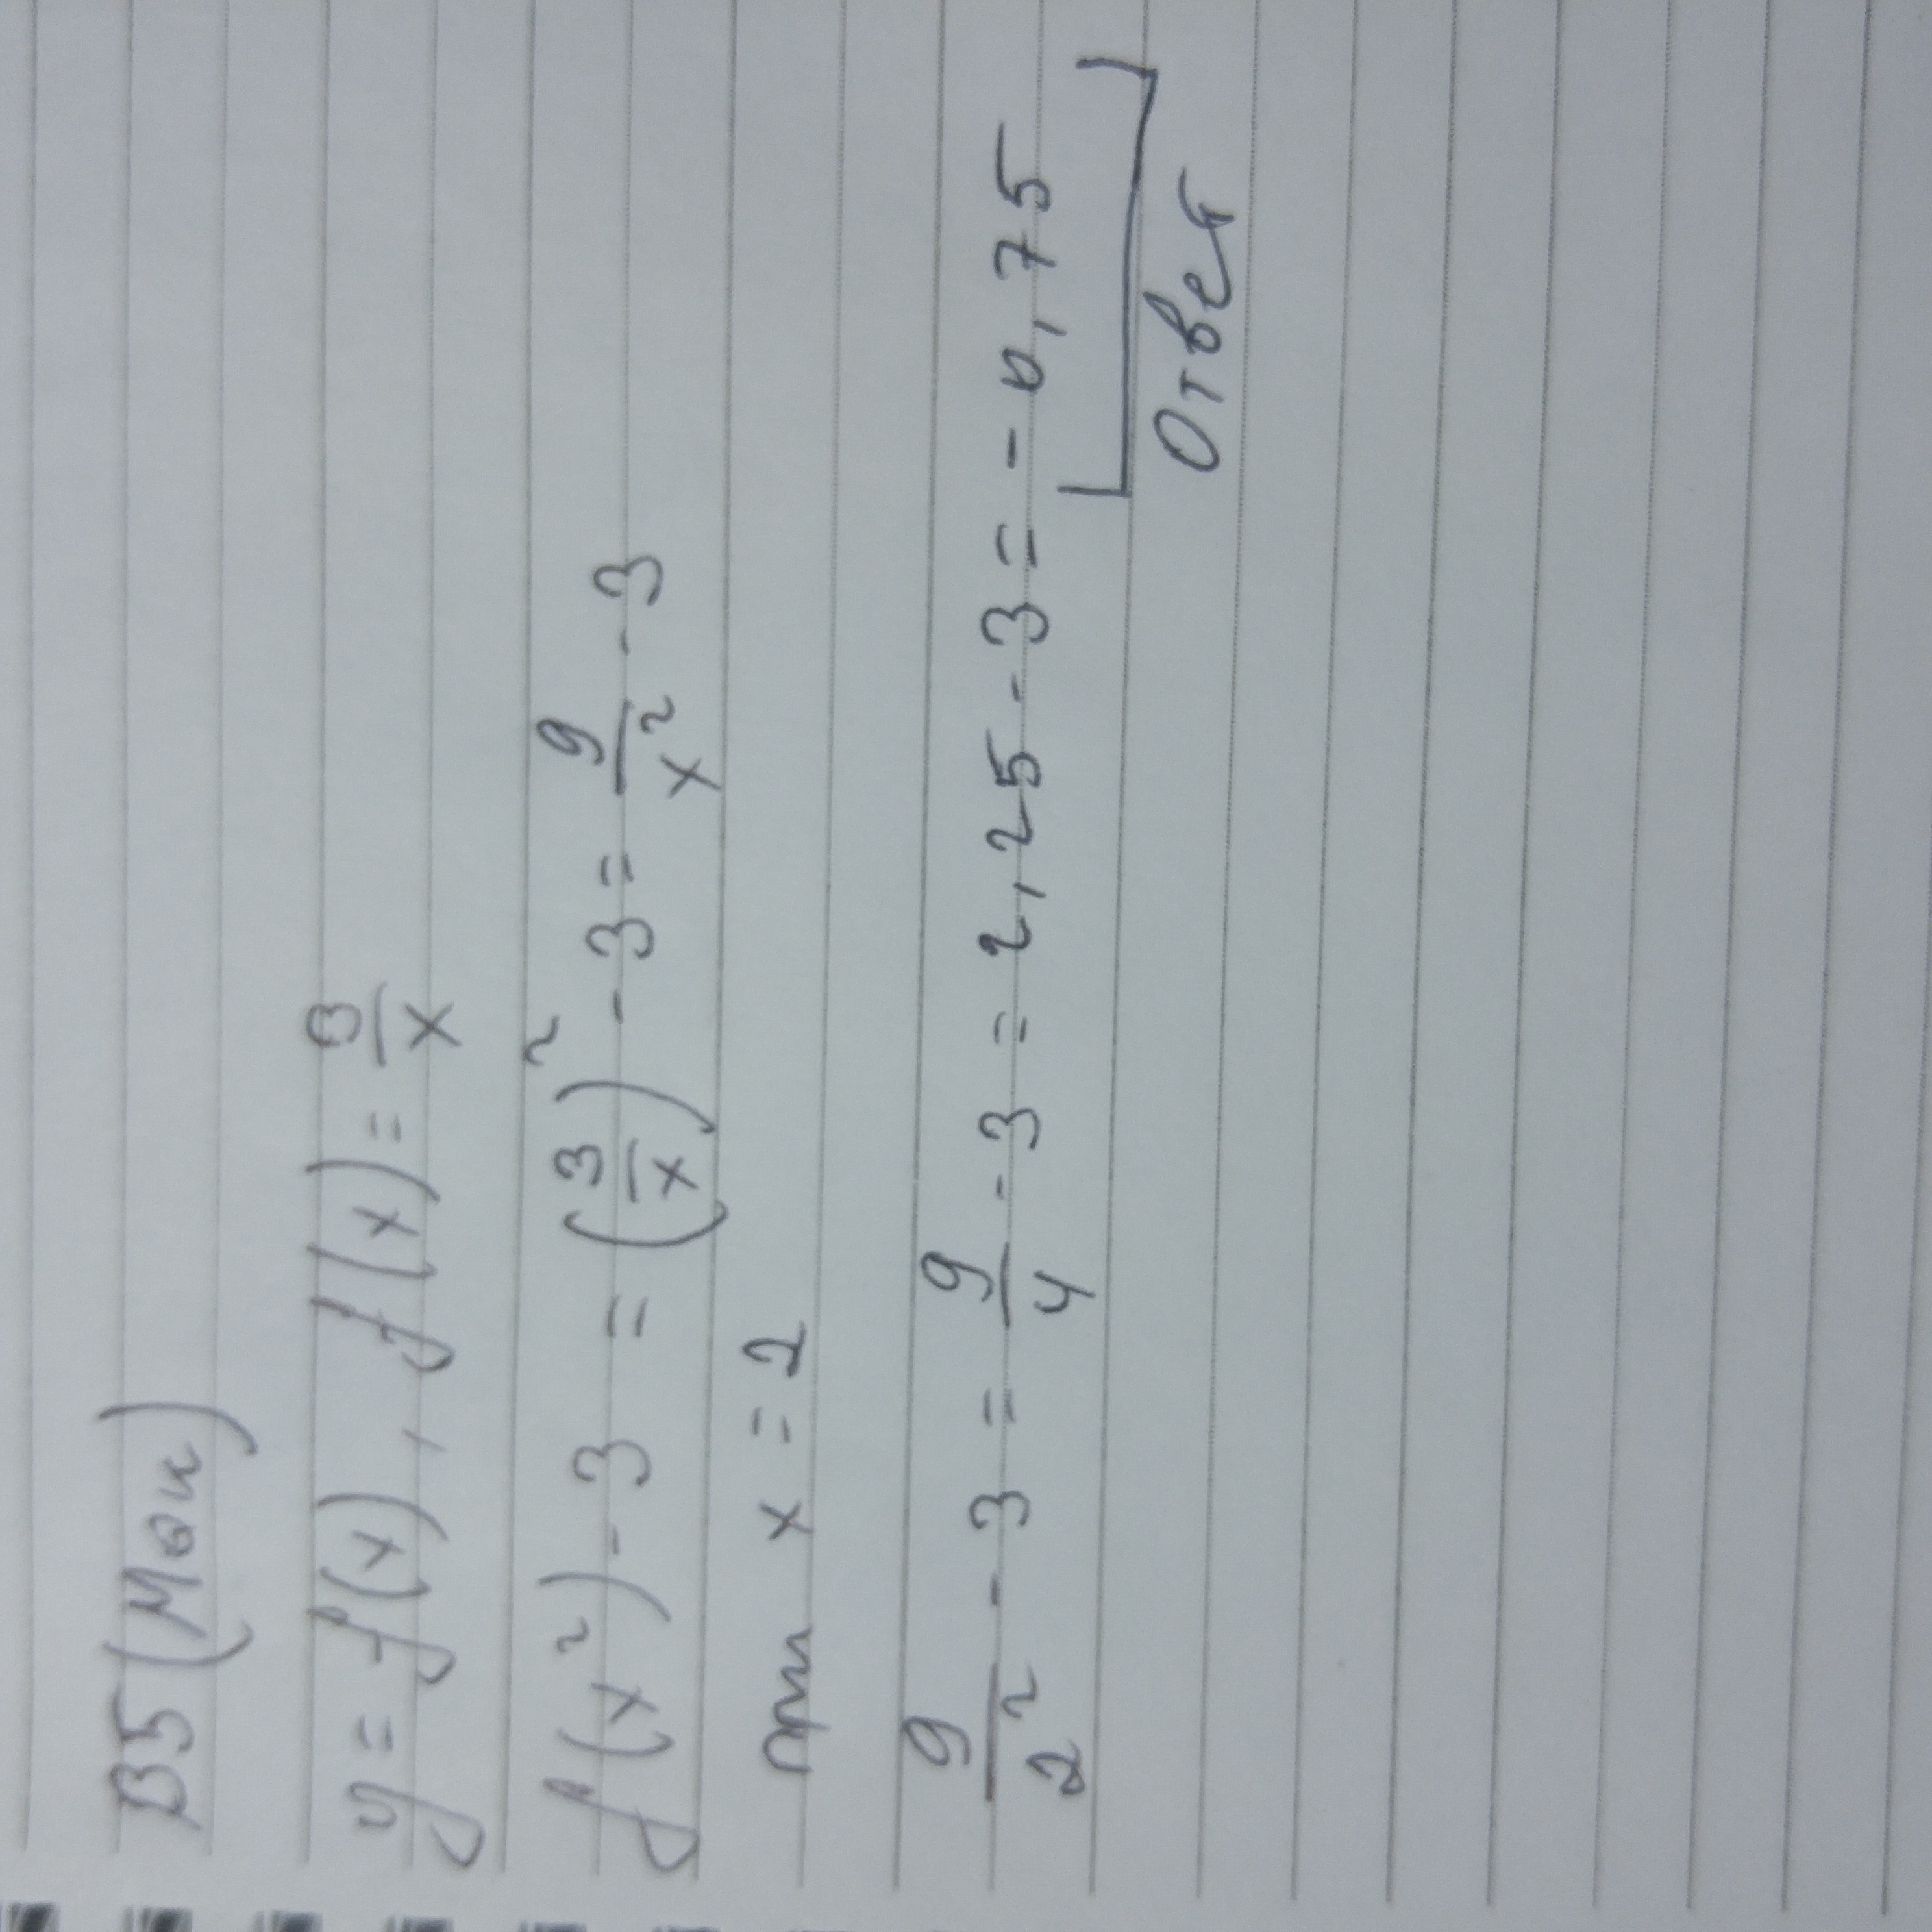 B5 (Мои)
y = f(x), f(x) = 3/x
f(x²) - 3 = (3/x)² - 3 = 9/x² - 3
при x = 2
9/2² - 3 = 9/4 - 3 = 2,25 - 3 = - 0,75
Ответ